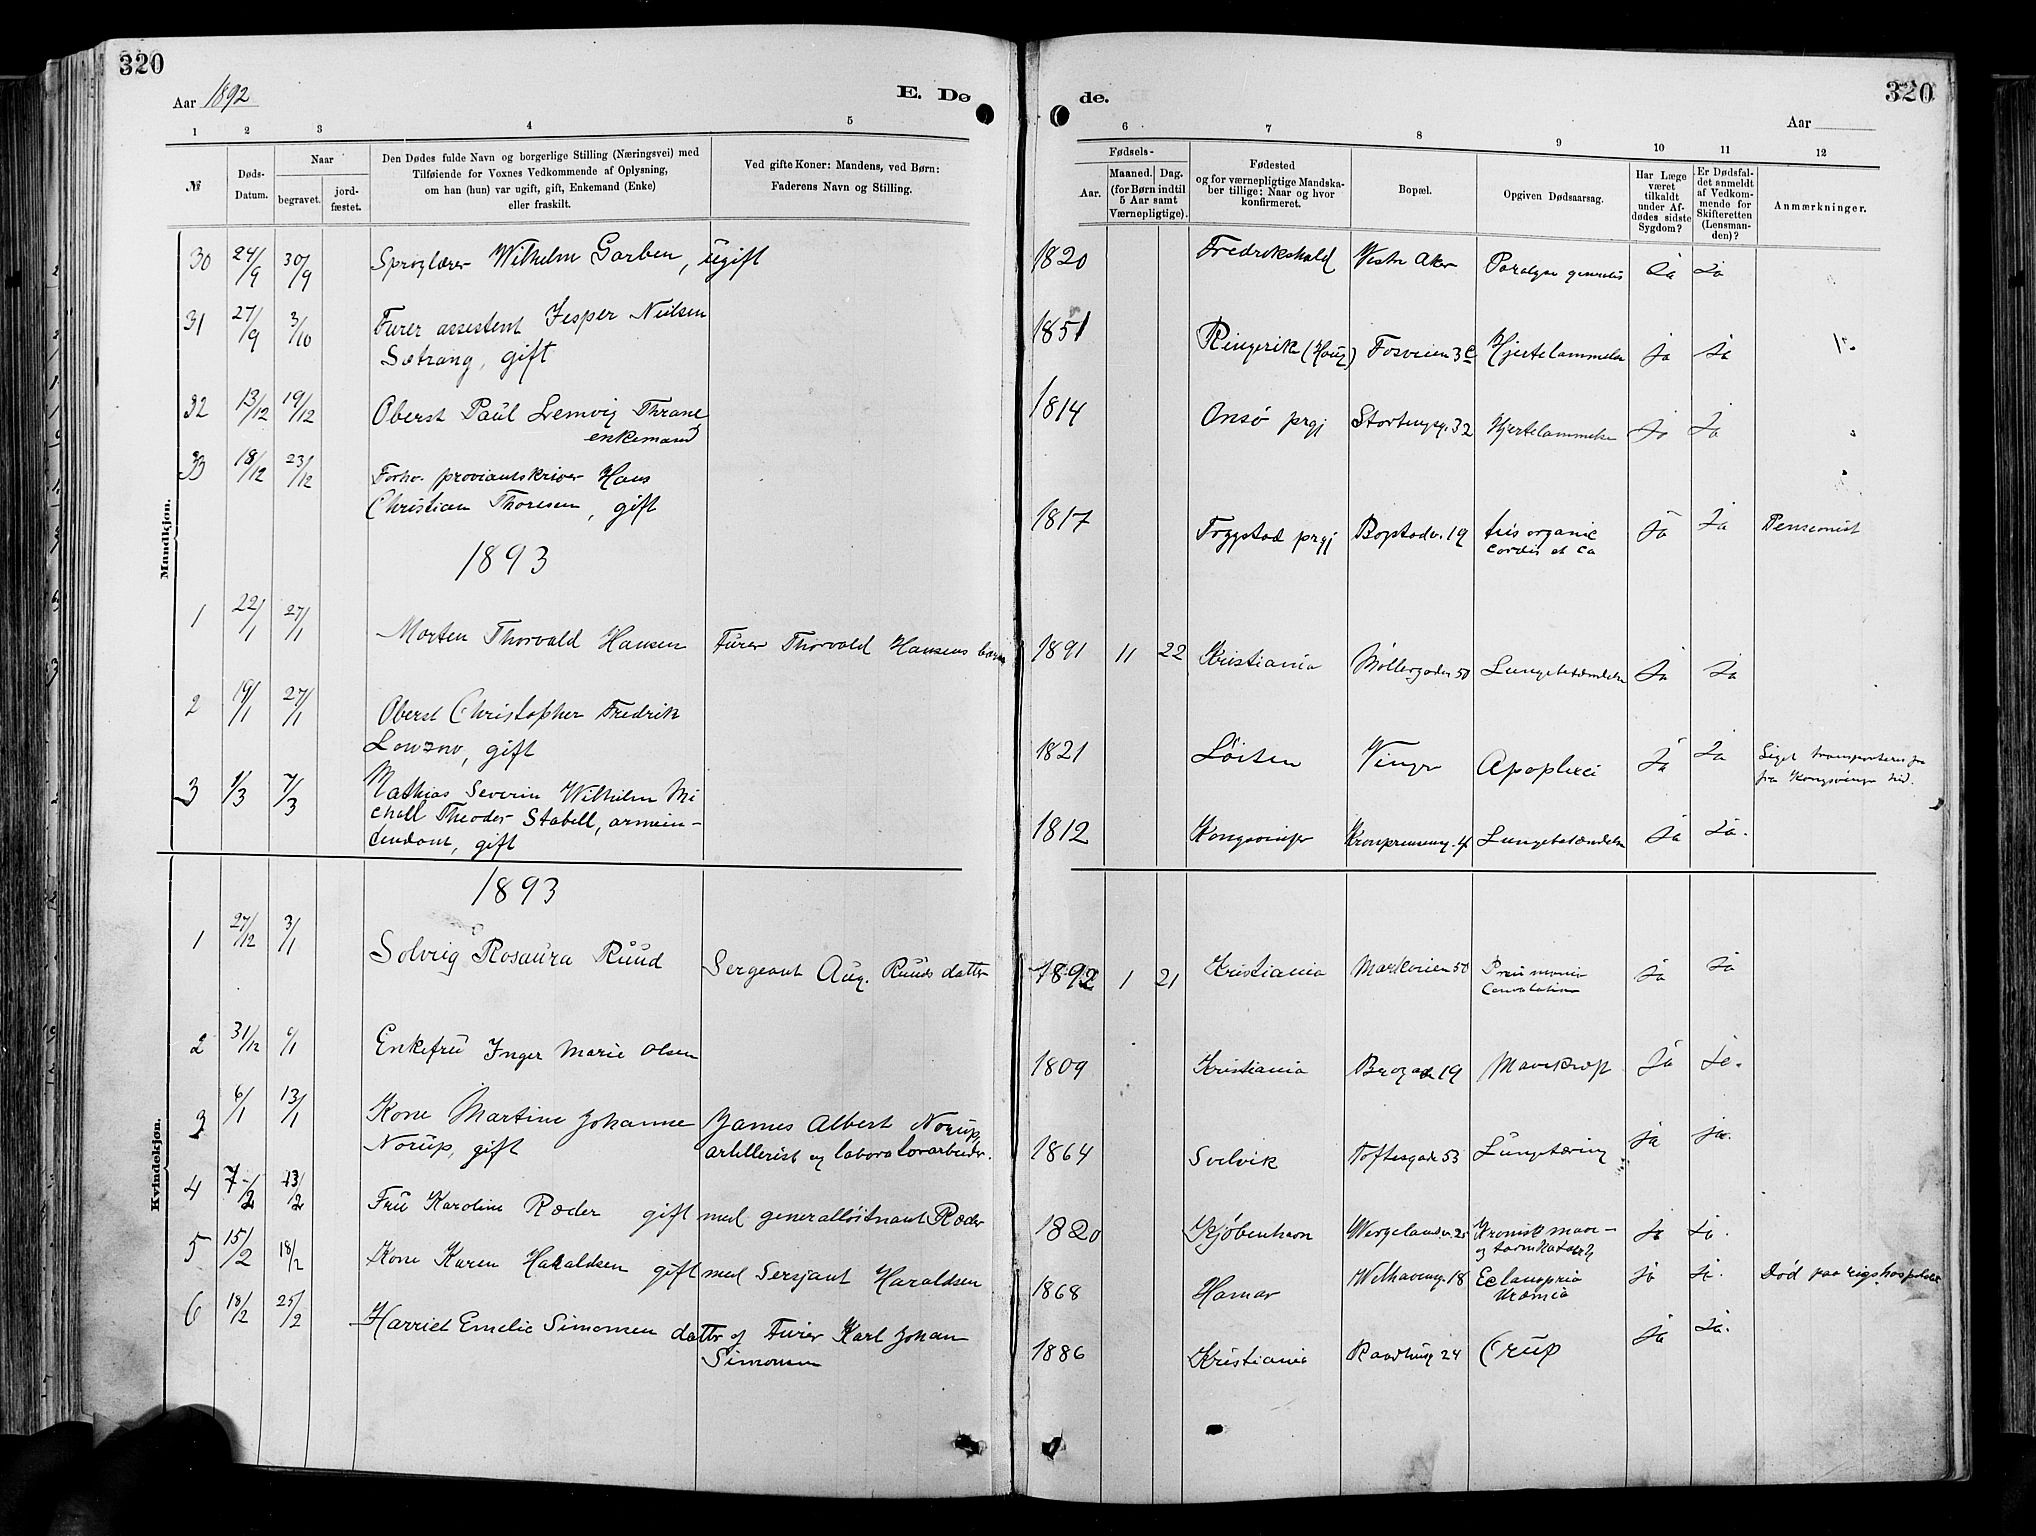 320
Aar 1892
E. Dø
de.
320
Aar
1 2 3 4 5 6 7 8 9 10 11 12
№
Døds-Datum.
Naar
begravet.
jord-fæstet.
Den Dødes fulde Navn og borgerlige Stilling (Næringsvei) med
Tilføiende for Voxnes Vedkommende af Oplysning,
om han (hun) var ugift, gift, Enkemand (Enke)
eller fraskilt.
Ved gifte Koner: Mandens, ved Børn:
Faderens Navn og Stilling.
Fødsels-
Aar.
Maaned. Dag.
(for Børn indtil
5 Aar samt
Værnepligtige).
Fødested
og for værnepligtige Mandska-
ber tillige: Naar og hvor
konfirmeret.
Bopæl.
Opgiven Dødsaarsag.
Har Læge
været
tilkaldt
under Af-
dødes sidste
Sygdom?
Er Dødsfal-
det anmeldt
af Vedkom-
mende for
Skifteretten
(Lensman-
den)?
Anmærkninger.
Mandkjøn.
30 24/9 30/9 Sproglærer Wilhelm Garben, ugift 1820 Fredrikshald Vestre Aker Paralyse generalis Ja Ja
31 27/9 3/10 Furer assistent Jesper Nielsen 1851 Ringerik (Houg) Fosveien 3 c Hjertelammelse Ja Ja
Sætrang, gift
32 13/12 19/12 Oberst Paul Lemvig Thrane 1814 Onsø prgj Stortingsg. 32 Hjertelammelse Ja Ja
enkemand
33 18/12 23/12 Forhv. proviantskriver Hans
Christian Thoresen, gift 1817 Trygstad prgj Bogstadv. 19 organic Ja Ja Pensionist
cordis et ca
1893
1 22/1 27/1 Morten Thorvald Hansen Furer Thorvald Hansens barn 1891 11 22 Kristiania Møllergaden 50 Lungebetændelse Ja Ja
2 19/1 27/1 Oberst Christopher Fredrik
Lowzow, gift 1821 Løiten Vinger Apoplexi Ja Ja Liget transporteres
fra Kongsvinger hid.
3 1/3 7/3 Mathias Severin Wilhelm Mi
chall Theodor Stabell, armein- 1812 Kongsvinger Kronprinsensg. 4 Lungebetændelse Ja Ja.
tendant, gift
Kvindekjøn.
1893
1 27/12 3/1 Solveig Rosaura Ruud Sergeant Aug. Ruuds datter 1892 1 21 Kristiania Markveien 50 Pneumonia Ja Ja
2 31/12 6/1 Enkefru Inger Marie Olsen 1809 Kristiania Brogaden 19 Mavekræft Ja Ja.
3 6/1 13/1 Kone Martine Johanne James Albert Norup,
Norup, gift artillerist og laboratorarbeider. 1864 Svelvik Toftesgade 53 Lungetæring Ja Ja.
4 7/2 13/2 Fru Karoline Ræder gift med generalløitnant Ræder 1820 Kjøbenhavn Wergelandsv. 25 Kronisk mave- Ja Ja.
og tarmkatarrh
5 15/2 18/2 Kone Karen Haraldsen gift med Sersjant Haraldsen 1868 Hamar Welhavensg. 18 Eclampsia Ja Ja. Død paa rigshospitalet
Uræmia
6 18/2 25/2 Harriet Emelie Simonsen datter af Furer Karl Johan 1886 Kristiania Raadhusg 24 Crup Ja Ja.
Simonsen